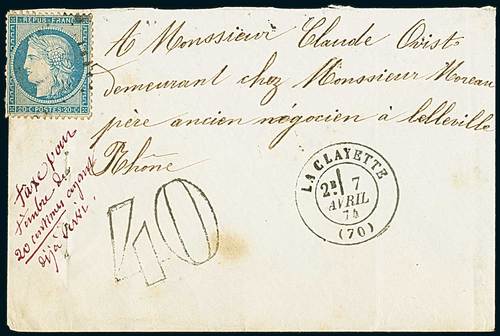 REPUB·FRANC·
20·C·POSTES·20·C
A Monssieur Claude Ovist
demeurant chez Monssieur Moreau
père ancien négocien à belleville
Rhône
Taxe pour
timbre de
20 centimes ayant
déjà servi.
40
LA CLAYETTE
2E 7
AVRIL
74
(70)